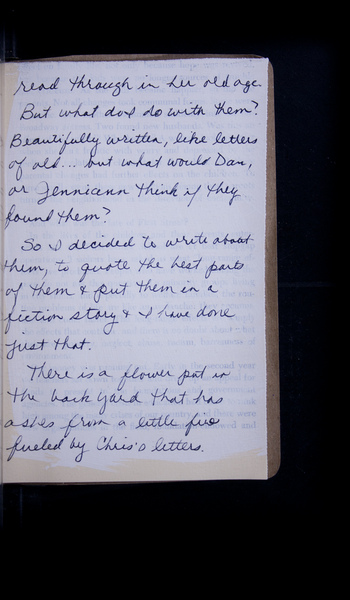 read through in her old age.
But what do I do with them?
Beautifully written, like letters
of old... but what would Dan,
or Jennicann think if they
found them?
So I decided to write about
them, to quote the best parts
of them & put them in a
fiction story & I have done
just that.
There is a flower pot in
the back yard that has
ashes from a little fire
fueled by Chris's letters.